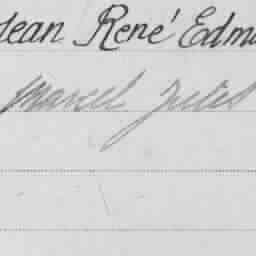 Jean René Edm
Marcel Jules